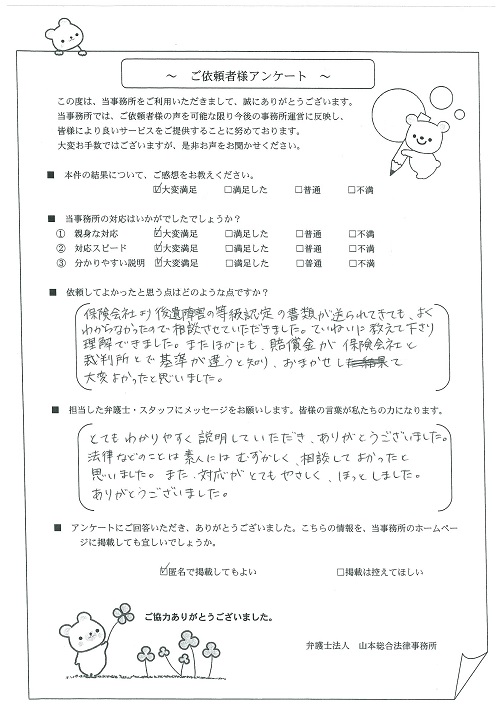 ～ ご依頼者様アンケート ～
この度は、当事務所をご利用いただきまして、誠にありがとうございます。
当事務所では、ご依頼者様の声を可能な限り今後の事務所運営に反映し、
皆様により良いサービスをご提供することに努めております。
大変お手数ではございますが、是非お声をお聞かせください。
■ 本件の結果について、ご感想をお教えください。
☑大変満足 □満足した □普通 □不満
■ 当事務所の対応はいかがでしたでしょうか？
① 親身な対応 ☑大変満足 □満足した □普通 □不満
② 対応スピード ☑大変満足 □満足した □普通 □不満
③ 分かりやすい説明 ☑大変満足 □満足した □普通 □不満
■ 依頼してよかったと思う点はどのような点ですか？
保険会社より後遺障害の等級認定の書類が送られてきても、よく
わからなかったので相談させていただきました。ていねいに教えて下さり
理解できました。またほかにも、賠償金が保険会社と
裁判所とで基準が違うと知り、おまかせして
大変よかったと思いました。
■ 担当した弁護士・スタッフにメッセージをお願いします。皆様の言葉が私たちの力になります。
とてもわかりやすく説明していただき、ありがとうございました。
法律などのことは素人にはむずかしく、相談してよかったと
思いました。また、対応がとてもやさしく、ほっとしました。
ありがとうございました。
■ アンケートにご回答いただき、ありがとうございました。こちらの情報を、当事務所のホームペー
ジに掲載しても宜しいでしょうか。
☑匿名で掲載してもよい □掲載は控えてほしい
ご協力ありがとうございました。
弁護士法人 山本総合法律事務所